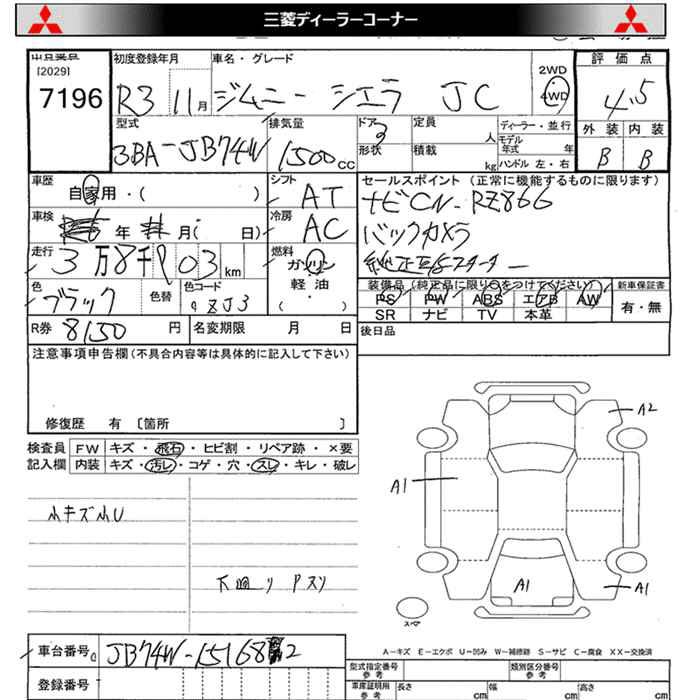 三菱ディーラーコーナー
[2029]
7196
初度登録年月
R3 11月
車名・グレード
ジムニー シエラ JC
2WD
4WD
評価点
4.5
外装 内装
B B
型式
3BA-JB74W
排気量
1500cc
ドア 3
形状
定員 人
積載 kg
ディーラー・並行
モデル年式 年
ハンドル 左・右
車歴
自家用・( )
シフト
AT
車検
年 月( 日)
冷房
AC
走行
3万8千903km
燃料
ガソリン
軽油
・( )
色
ブラック
色替
色コード
ZJ3
R券 8150円
名変期限 月 日
セールスポイント (正常に機能するものに限ります)
ナビCN-RZ866
バックカメラ
装備品(純正品に限り○をつけてください)
PS PW ABS エアB AW
SR ナビ TV 本革
新車保証書
有・無
後日品
注意事項申告欄(不具合内容等は具体的に記入して下さい)
修復歴 有 [箇所 ]
検査員記入欄
FW キズ・飛石・ヒビ割・リペア跡・×要
内装 キズ・汚レ・コゲ・穴・スレ・キレ・破レ
小キズ小U
下回リ Pスリ
A2
A1
A1
A1
スペア
A-キズ E-エクボ U-凹み W-補修跡 S-サビ C-腐食 XX-交換済
車台番号 JB74W-151682
登録番号
型式指定番号 参考
類別区分番号 参考
車庫証明用 参考
長さ cm
幅 cm
高さ cm